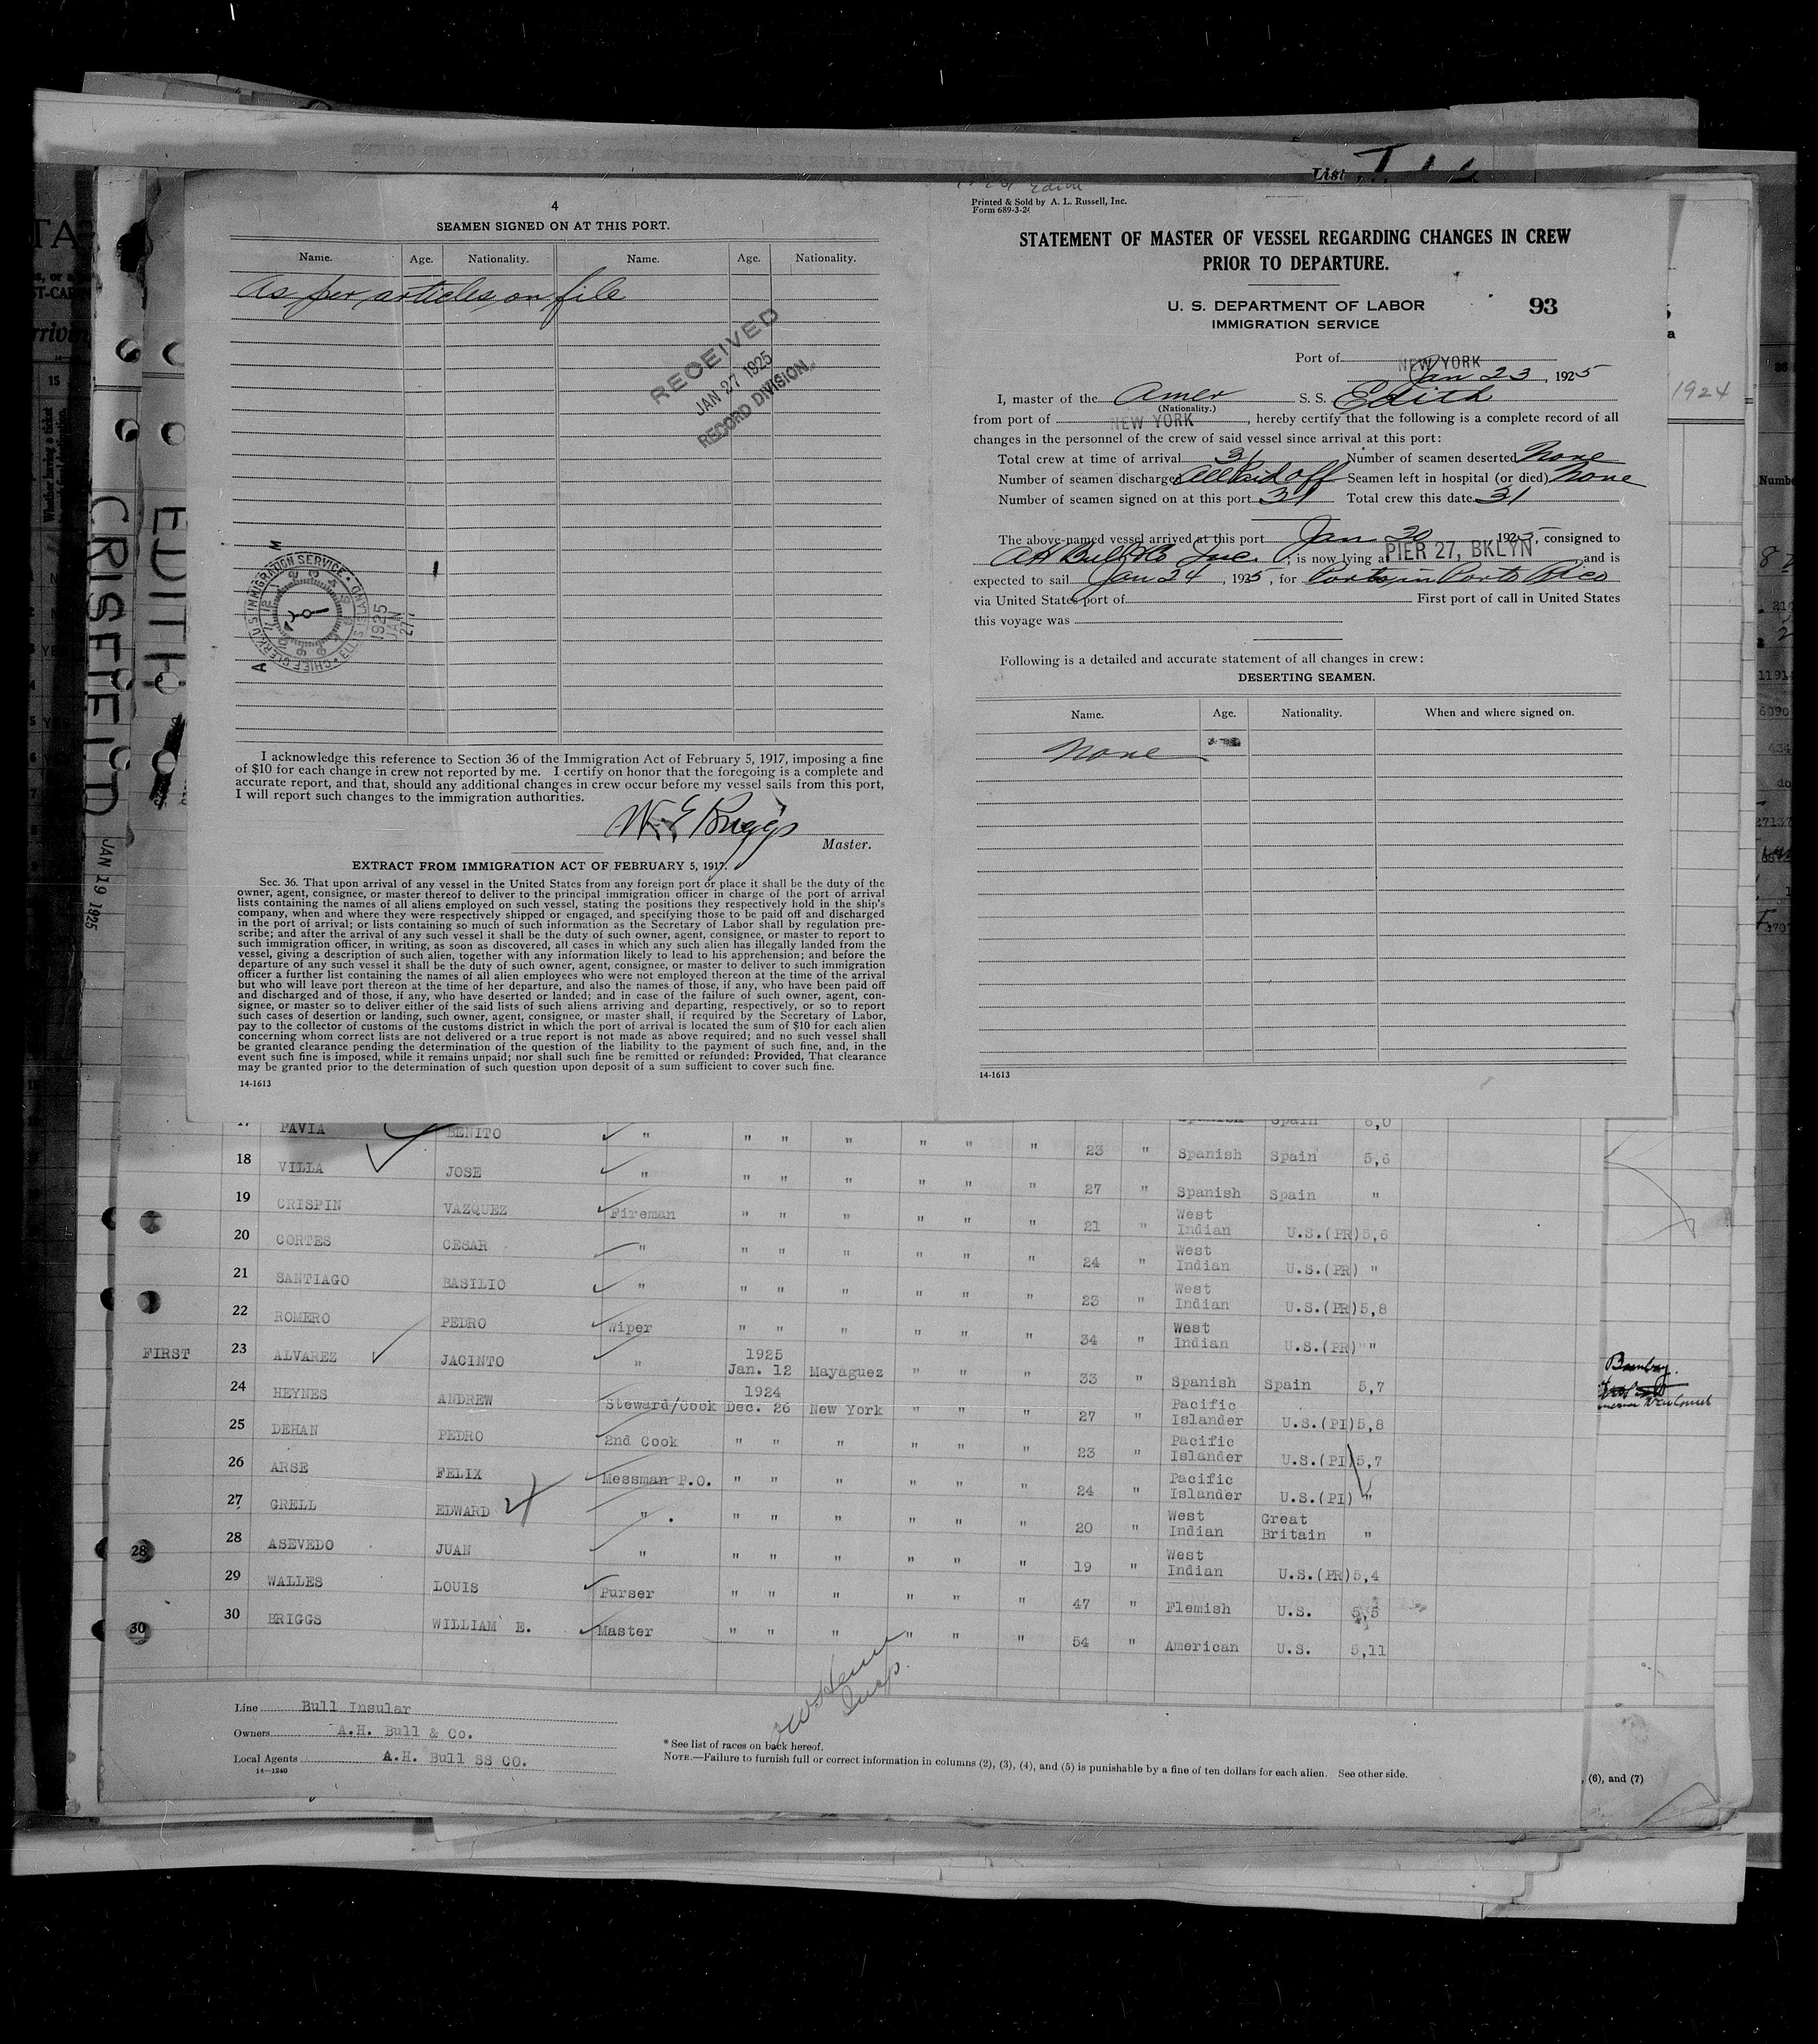 4
SEAMEN SIGNED ON AT THIS PORT.
Name. Age. Nationality. Name. Age. Nationality.
As per articles on file
RECEIVED
JAN 27 1925
RECORD DIVISION
I acknowledge this reference to Section 36 of the Immigration Act of February 5, 1917, imposing a fine
of $10 for each change in crew not reported by me. I certify on honor that the foregoing is a complete and
accurate report, and that, should any additional changes in crew occur before my vessel sails from this port,
I will report such changes to the immigration authorities.
W. E Briggs
Master.
EXTRACT FROM IMMIGRATION ACT OF FEBRUARY 5, 1917.
Sec. 36. That upon arrival of any vessel in the United States from any foreign port or place it shall be the duty of the
owner, agent, consignee, or master thereof to deliver to the principal immigration officer in charge of the port of arrival
lists containing the names of all aliens employed on such vessel, stating the positions they respectively hold in the ship's
company, when and where they were respectively shipped or engaged, and specifying those to be paid off and discharged
in the port of arrival; or lists containing so much of such information as the Secretary of Labor shall by regulation pre-
scribe; and after the arrival of any such vessel it shall be the duty of such owner, agent, consignee, or master to report to
such immigration officer, in writing, as soon as discovered, all cases in which any such alien has illegally landed from the
vessel, giving a description of such alien, together with any information likely to lead to his apprehension; and before the
departure of any such vessel it shall be the duty of such owner, agent, consignee, or master to deliver to such immigration
officer a further list containing the names of all alien employees who were not employed thereon at the time of the arrival
but who will leave port thereon at the time of her departure, and also the names of those, if any, who have been paid off
and discharged and of those, if any, who have deserted or landed; and in case of the failure of such owner, agent, con-
signee, or master so to deliver either of the said lists of such aliens arriving and departing, respectively, or so to report
such cases of desertion or landing, such owner, agent, consignee, or master shall, if required by the Secretary of Labor,
pay to the collector of customs of the customs district in which the port of arrival is located the sum of $10 for each alien
concerning whom correct lists are not delivered or a true report is not made as above required; and no such vessel shall
be granted clearance pending the determination of the question of the liability to the payment of such fine, and, in the
event such fine is imposed, while it remains unpaid; nor shall such fine be remitted or refunded: Provided, That clearance
may be granted prior to the determination of such question upon deposit of a sum sufficient to cover such fine.
14-1613
List
Edith
Printed & Sold by A. L. Russell, Inc.
Form 689-3-24
STATEMENT OF MASTER OF VESSEL REGARDING CHANGES IN CREW
PRIOR TO DEPARTURE.
U. S. DEPARTMENT OF LABOR
IMMIGRATION SERVICE
93
Port of NEW YORK
Jan 23, 1925
I, master of the Amer S. S. Edith
(Nationality.)
from port of NEW YORK, hereby certify that the following is a complete record of all
changes in the personnel of the crew of said vessel since arrival at this port:
Total crew at time of arrival 31 Number of seamen deserted None
Number of seamen discharged All Paid off Seamen left in hospital (or died) None
Number of seamen signed on at this port 31 Total crew this date 31
The above-named vessel arrived at this port Jan 20, 1925, consigned to
A H Bull & Co Inc.; is now lying at PIER 27, BKLYN and is
expected to sail Jan 24, 1925, for Ports in Porto Rico
via United States port of First port of call in United States
this voyage was
Following is a detailed and accurate statement of all changes in crew:
DESERTING SEAMEN.
Name. Age. Nationality. When and where signed on.
None
14-1613
CRISFIELD
JAN 19 1925
EDITH
1924
17 PAVIA BENITO " " " " " " " Spanish Spain 6,0
18 VILLA JOSE " " " " " " " 23 " Spanish Spain 5,6
19 CRISPIN VAZQUEZ Fireman " " " " " " 27 " Spanish Spain "
20 CORTES CESAR " " " " " " " 21 " West Indian U.S.(PR) 5,6
21 SANTIAGO BASILIO " " " " " " " 24 " West Indian U.S.(PR) "
22 ROMERO PEDRO Wiper " " " " " " 23 " West Indian U.S.(PR) 5,8
34 " West Indian U.S.(PR) "
FIRST 23 ALVAREZ JACINTO " 1925 Jan. 12 Mayaguez " " " 33 " Spanish Spain 5,7
24 HEYNES ANDREW Steward/Cook 1924 Dec. 26 New York " " " 27 " Pacific Islander U.S.(PI) 5,8
25 DEHAN PEDRO 2nd Cook " " " " " " 23 " Pacific Islander U.S.(PI) 5,7
26 ARSE FELIX Messman P.O. " " " " " " 24 " Pacific Islander U.S.(PI) "
27 GRELL EDWARD " " " " " " " 20 " West Indian Great Britain "
28 ASEVEDO JUAN " " " " " " " 19 " West Indian U.S.(PR) 5,4
29 WALLES LOUIS Purser " " " " " " 47 " Flemish U.S. 5,5
30 BRIGGS WILLIAM E. Master " " " " " " 54 " American U.S. 5,11
28
30
Bombay
Line Bull Insular
Owners A.H. Bull & Co.
Local Agents A.H. Bull SS CO.
14-1240
* See list of races on back hereof.
NOTE.—Failure to furnish full or correct information in columns (2), (3), (4), and (5) is punishable by a fine of ten dollars for each alien. See other side.
, (6), and (7)